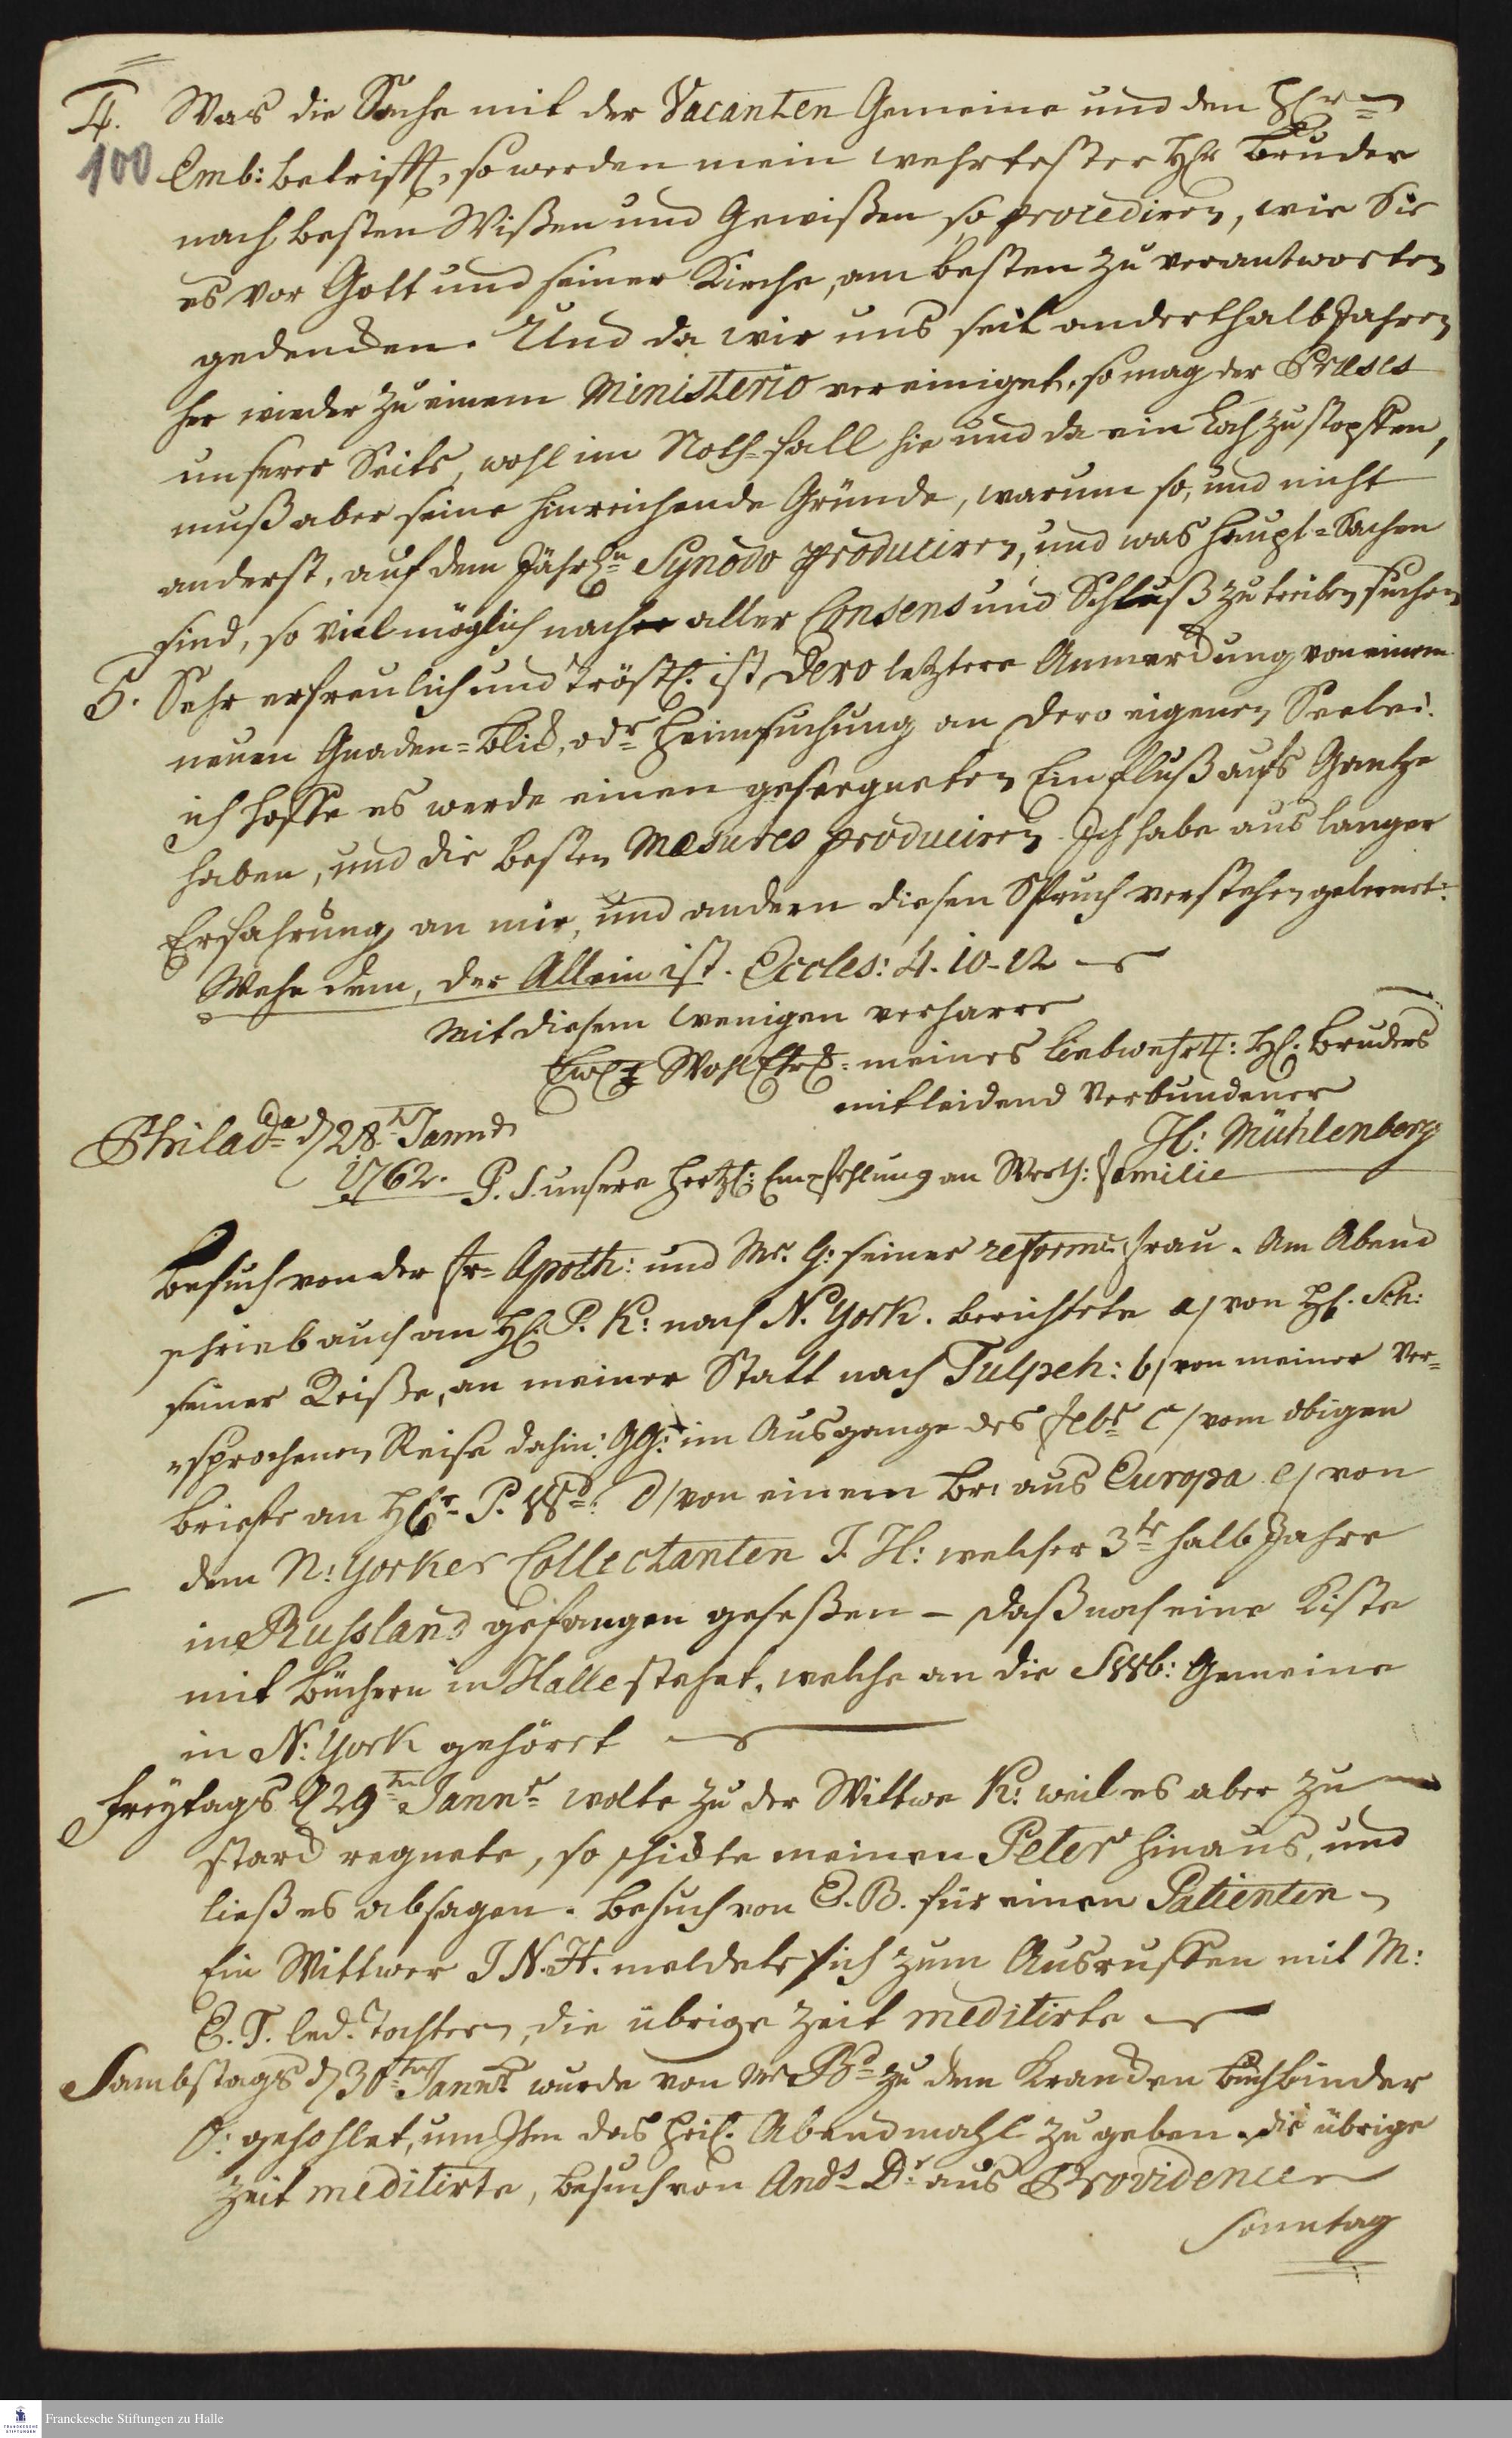 4. Was die Sache mit der Vacanten Gemeine und den
100
Emb: betrifft, so werden mein wehrtester HE Bruder
nach besten Wißen und Gewißen so procediren, wie Sie
es vor Gott und seiner Kirche, am besten zu verantworten
gedencken. Und da wir uns seit anderthalb Jahren
her wieder zu einem Ministerio vereiniget, so mag der Præses
unserer Seits, wohl im Noth-fall hie und da ein Loch zustopffen,
muß aber seine hinreichende Gründe, warum so, und nicht
anderst, auf dem Jährln Synodo produciren, und was Haupt-Sachen
sind, so viel möglich nach aller Consens und Schluß zu treiben suchen
5. Sehr erfreulich und tröstl. ist Dero letztere Anmerckung von einem
neuen Gnaden-Blick, odr Heimsuchung an Dero eigenen Seele:
ich hoffe es werde einen geseegneten Einfluß aufs Gantze
haben, und die besten Mesures produciren. Ich habe aus langer
Erfahrung an mir, und andern diesen Spruch verstehen gelernet:
Wehe dem, der Allein ist. Eccles: 4. 10-12
Mit diesem wenigen verharre
Ew Wohl Ehrw. meines liebwehrt: HE. Bruders
mitleidend Verbundener
Philada d 28tn Janua
H: Mühlenberg
1762. P. S. unsere hertzl: Empfehlung an Werth: familie
Besuch von der fr- Apoth: und Mr. G: seiner reform: frau. Am Abend
schrieb auch an HE. P. K: nach N. York. berichtete a/ von HE. Sch:
seiner Reiße, an meiner Statt nach Tulpeh: b/ von meiner Ver-
sprochenen Reise dahin: GG: im Ausgange des febr c/ vom obigen
briefe an HEr P. d/ von einem Br: aus Europa e/ von
dem N: Yorker Collectanten J. H: welcher 3te halb Jahre
in Russland gefangen geseßen - daß noch eine Kiste
mit Büchern in Halle stehet, welche an die Gemeine
in N: York gehöret
Freytags d 29tn Jannr wolte zu der Wittwe K: weil es aber zu
starck regnete, so schickte meinen Peter hinaus, und
ließ es absagen. Besuch von E. B. für einen Patienten
Ein Wittwer J N. H. meldete sich zum Ausruffen mit M:
E. T. led. Tochter, die übrige Zeit meditirte
Sambstags d 30tn Jannr wurde von Mr zu dem Krancken Buchbinder
O: gehohlet, um Ihm das Heil. Abendmahl zu geben. die übrige
Zeit meditirte, Besuch von Ands Dr aus Providence
Sonntag
Franckesche Stiftungen zu Halle